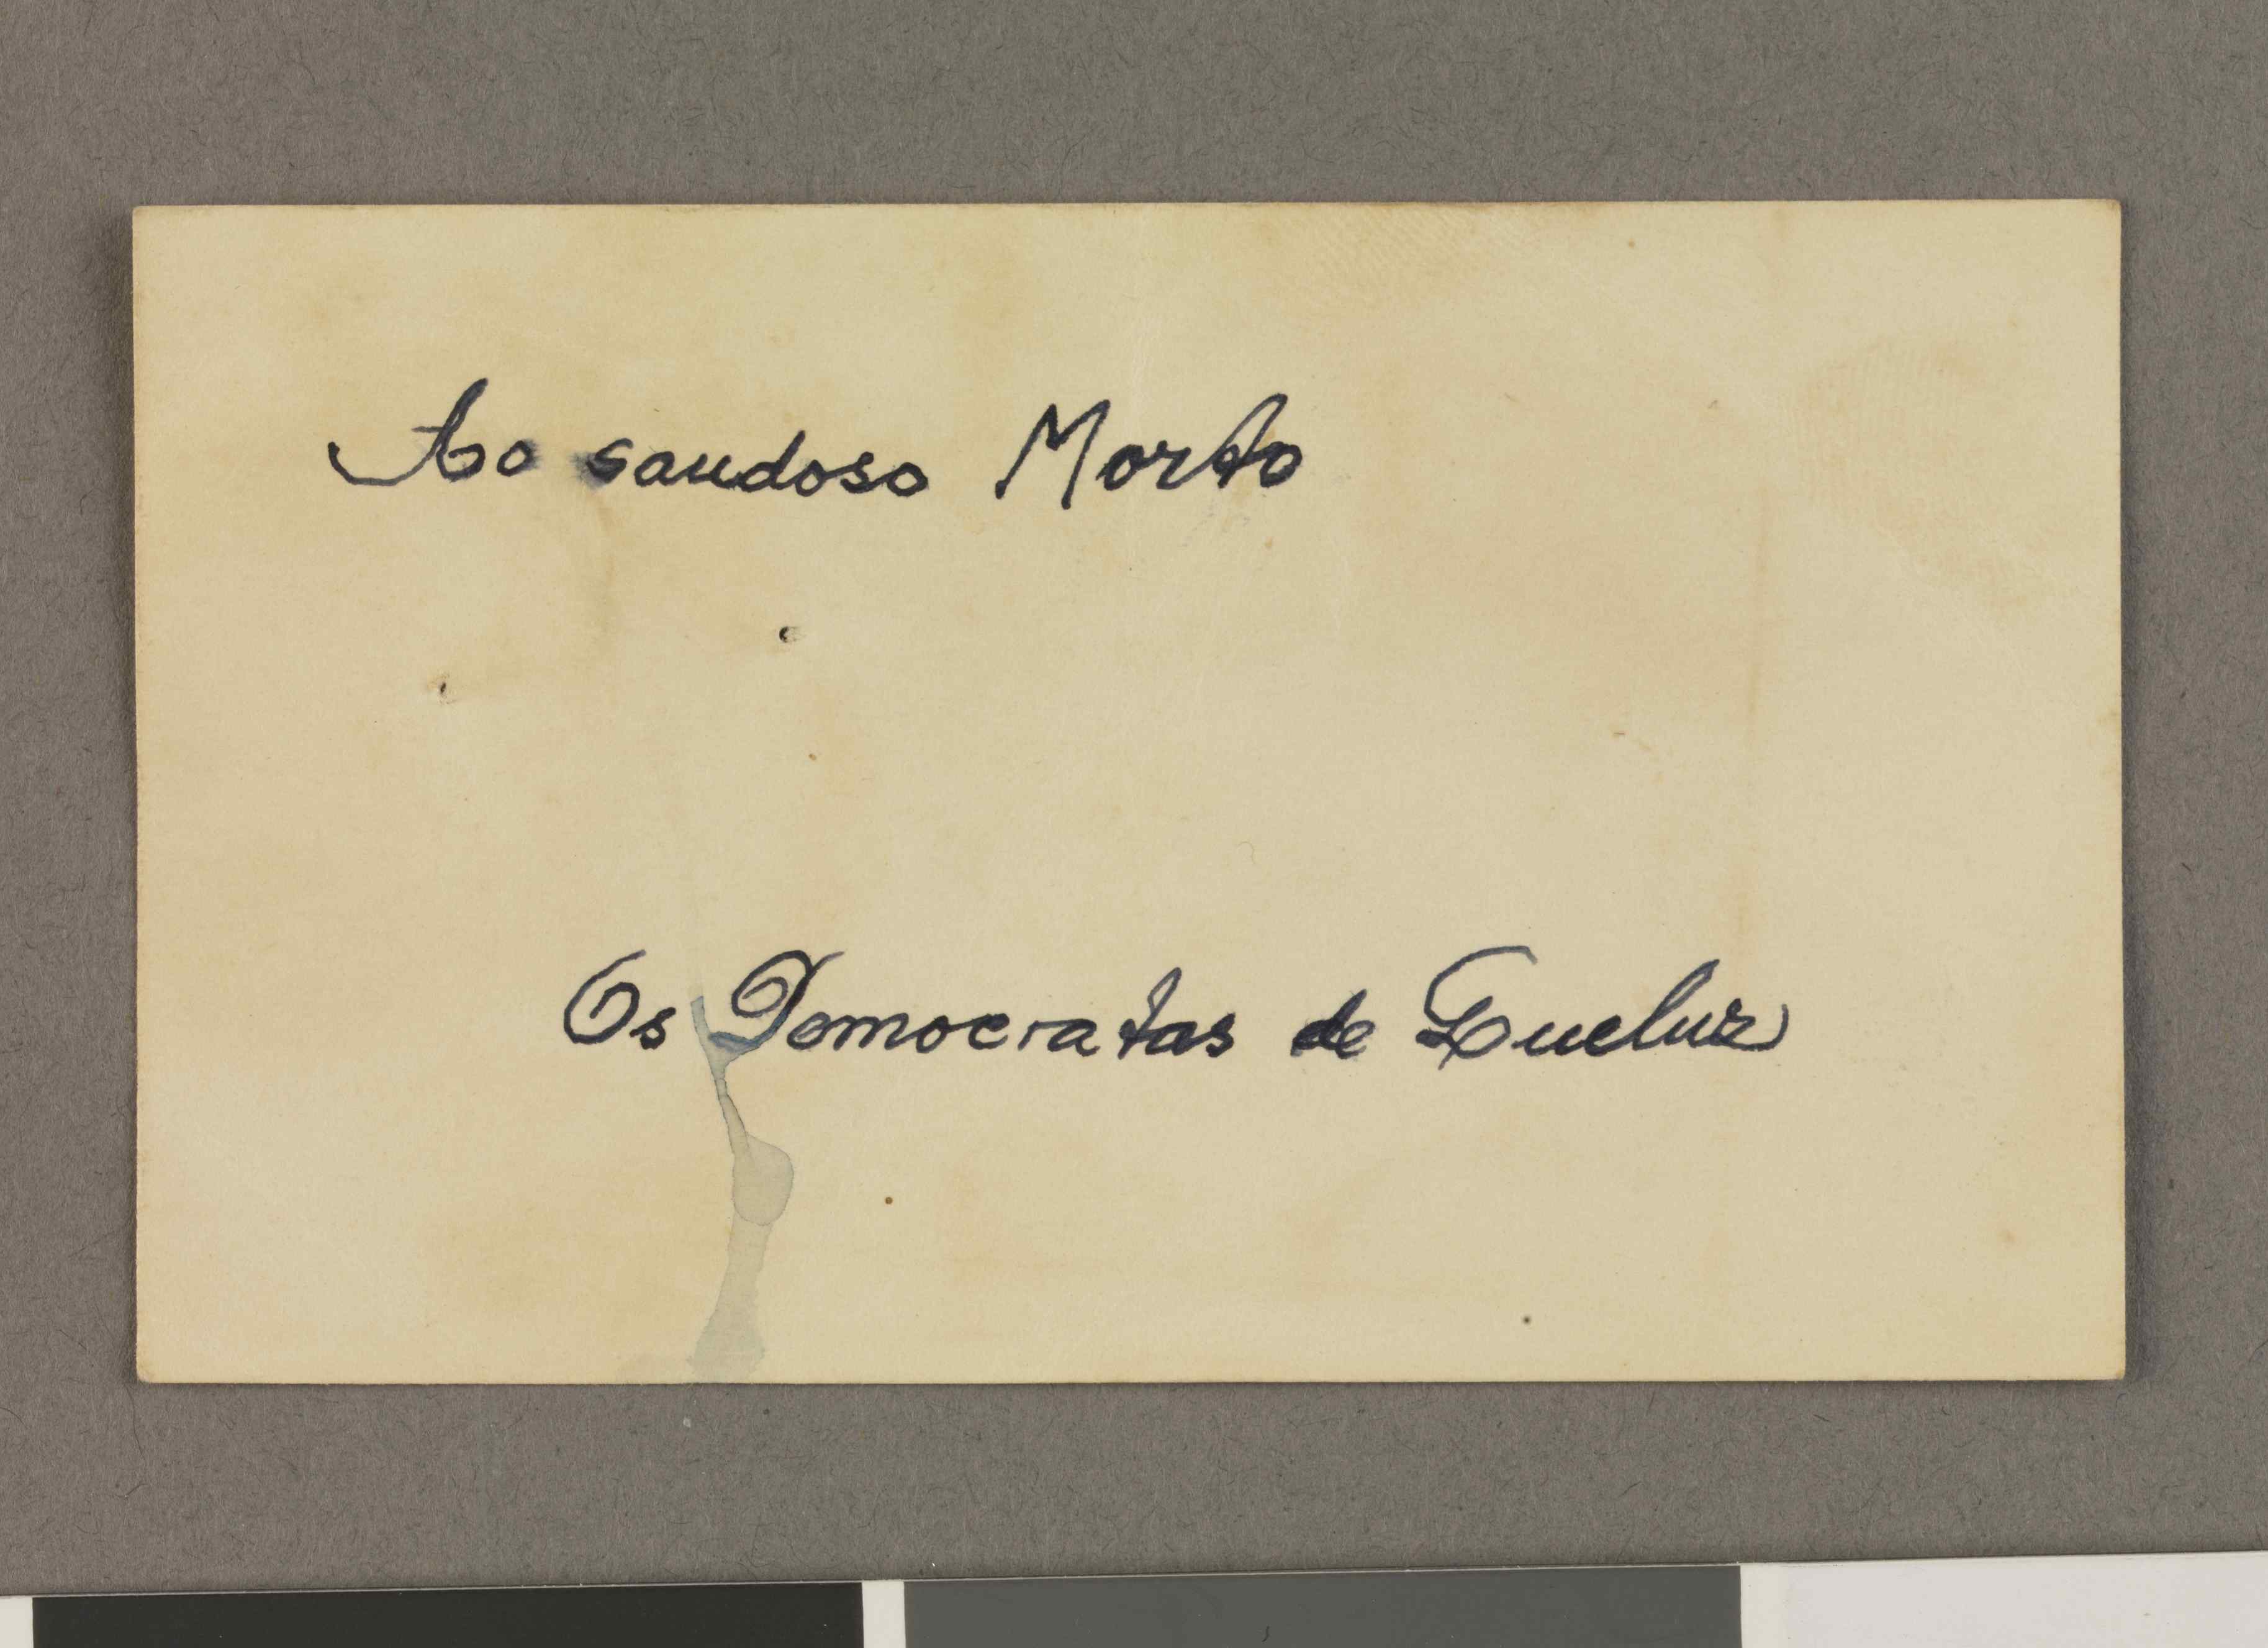 Ao saudoso Morto
Os Democratas de Queluz